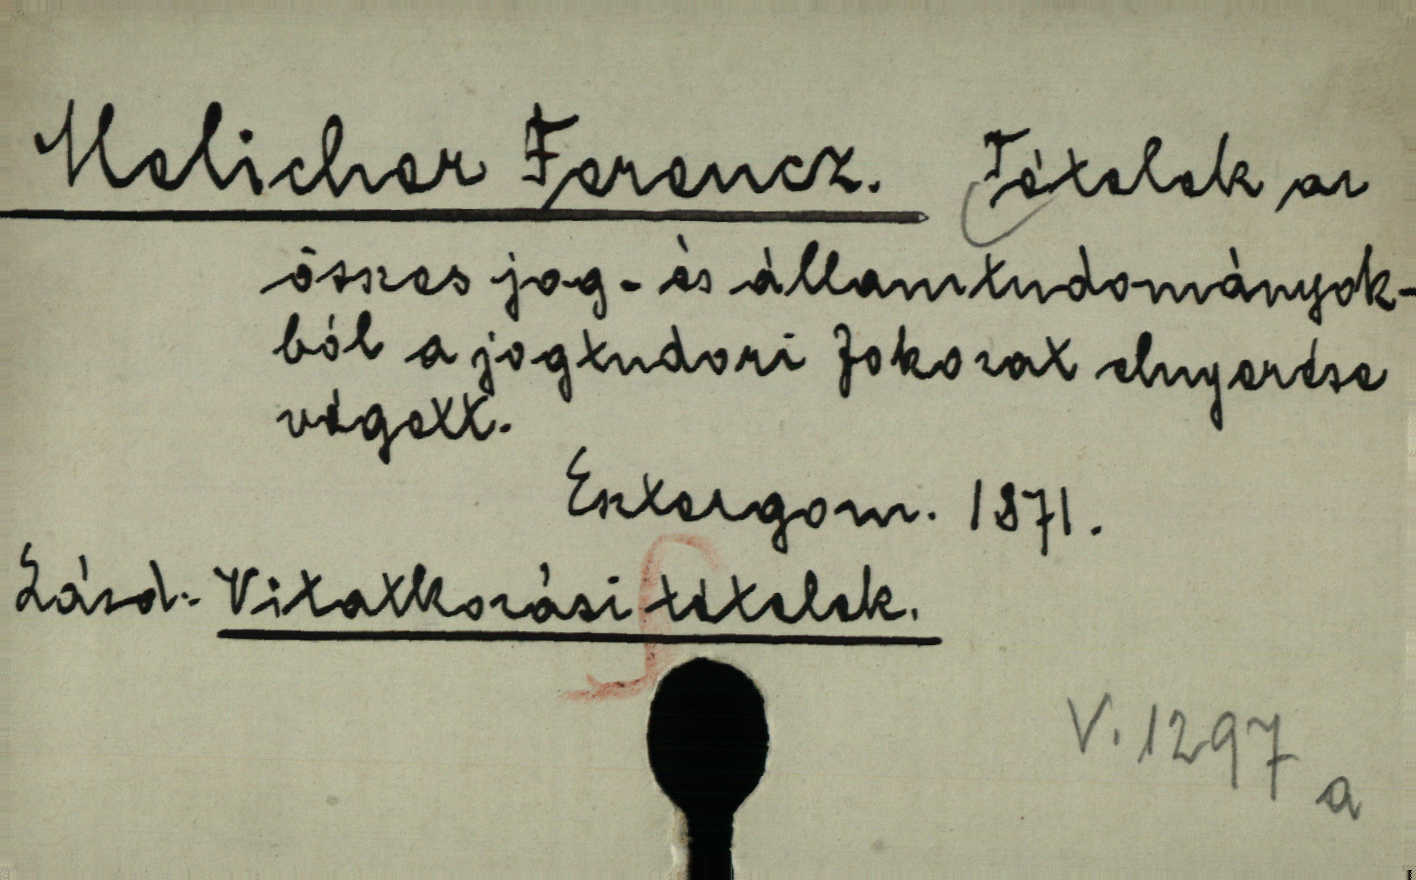 Melicher Ferencz. Tételek az
összes jog- és államtudományok-
ból a jogtudori fokozat elnyerése
végett.
Esztergom. 1871.
Lásd:- Vitatkozási tételek.
V. 1297
a